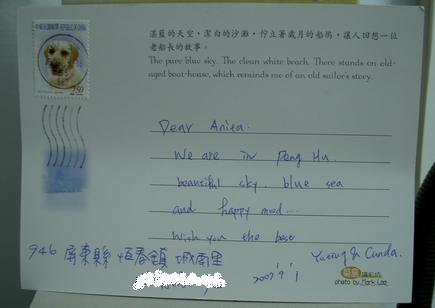 湛藍的天空，潔白的沙灘，佇立著歲月的船塢，讓人回想一位
老船長的故事。
The pure blue sky. The clean white beach. There stands on old-
aged boat-house, which reminds me of an old sailor's story.
Dear Anita:
We are in Peng Hu.
beautiful sky. blue sea
and happy mood...
Wish you the best
946 屏東縣 恆春鎮 城南里
2007 9 1
photo by Mark Lee